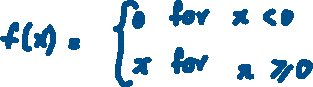 f(x) = { 0 for x < 0
x for x ≥ 0